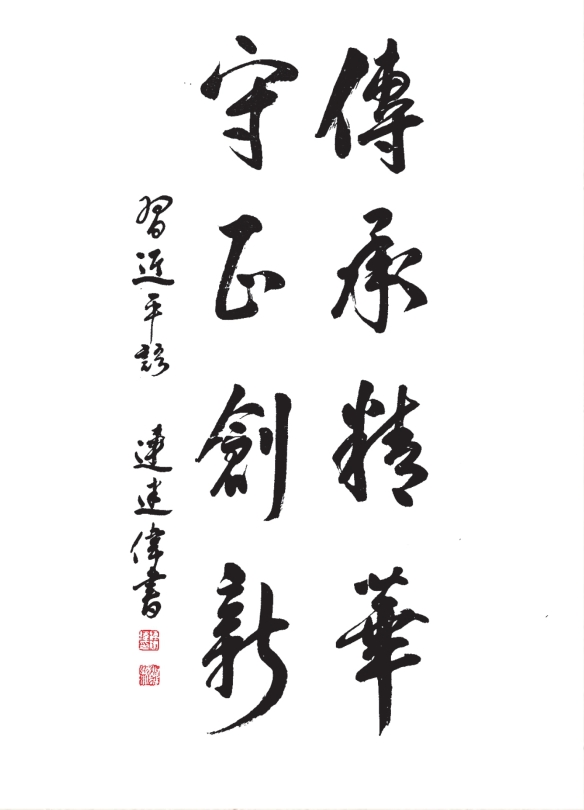 傳承精華
守正創新
習近平語 連建偉書